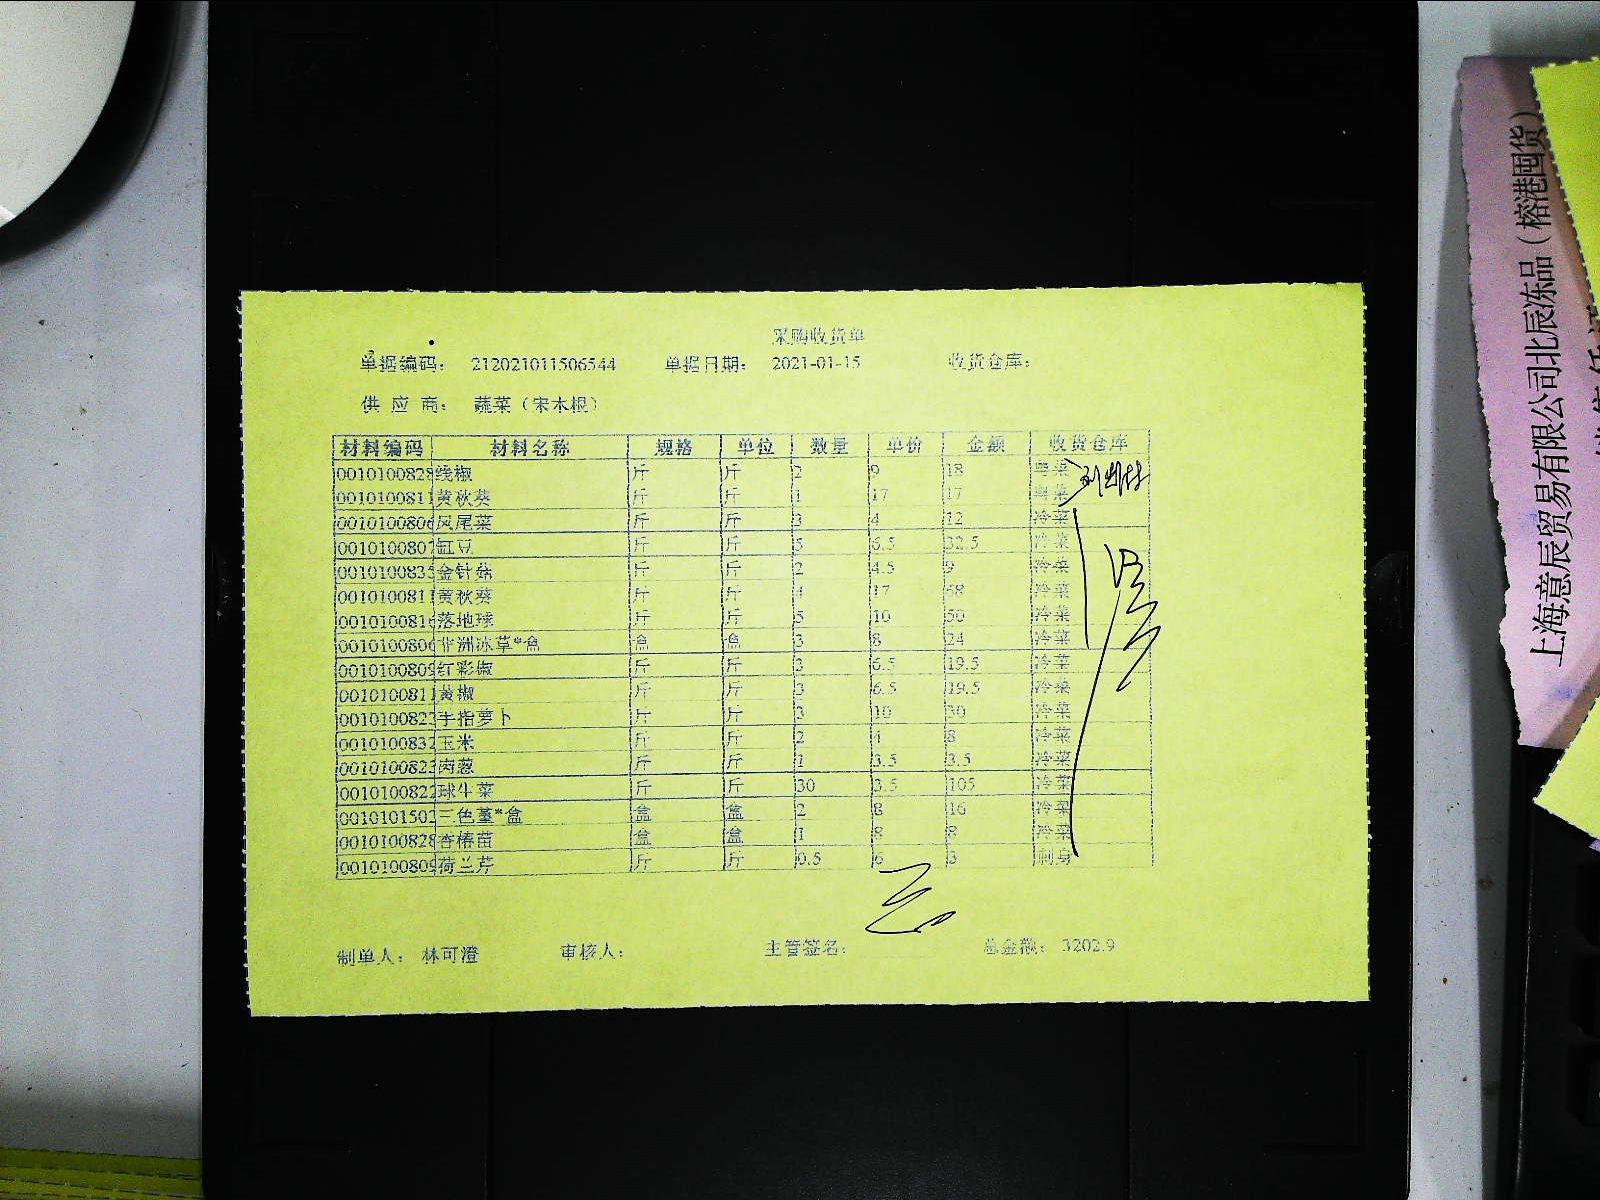 采购收货单
单据编码： 212021011506544 单据日期： 2021-01-15 收货仓库：
供 应 商： 蔬菜（宋本根）
材料编码 材料名称 规格 单位 数量 单价 金额 收货仓库
0010100828 线椒 斤 斤 2 9 18 粤菜
001010081 黄秋葵 斤 斤 1 17 17 粤菜
001010080 凤尾菜 斤 斤 3 4 12 冷菜
001010080 缸豆 斤 斤 5 6.5 32.5 冷菜
001010083 金针菇 斤 斤 2 4.5 9 冷菜
001010081 黄秋葵 斤 斤 4 17 68 冷菜
001010081 落地球 斤 斤 5 10 50 冷菜
001010080 非洲冰草*盒 盒 盒 3 8 24 冷菜
001010080 红彩椒 斤 斤 3 6.5 19.5 冷菜
001010081 黄椒 斤 斤 3 6.5 19.5 冷菜
001010082 手指萝卜 斤 斤 3 10 30 冷菜
001010083 玉米 斤 斤 2 4 8 冷菜
001010082 肉葱 斤 斤 1 3.5 3.5 冷菜
001010082 球生菜 斤 斤 30 3.5 105 冷菜
001010150 三色堇*盒 盒 盒 2 8 16 冷菜
001010082 香椿苗 盒 盒 1 8 8 冷菜
001010080 荷兰芹 斤 斤 0.5 6 3 刺身
制单人： 林可澄 审核人： 主管签名： 总金额： 3202.9
上海意辰贸易有限公司北辰冻品（榕港囤货）